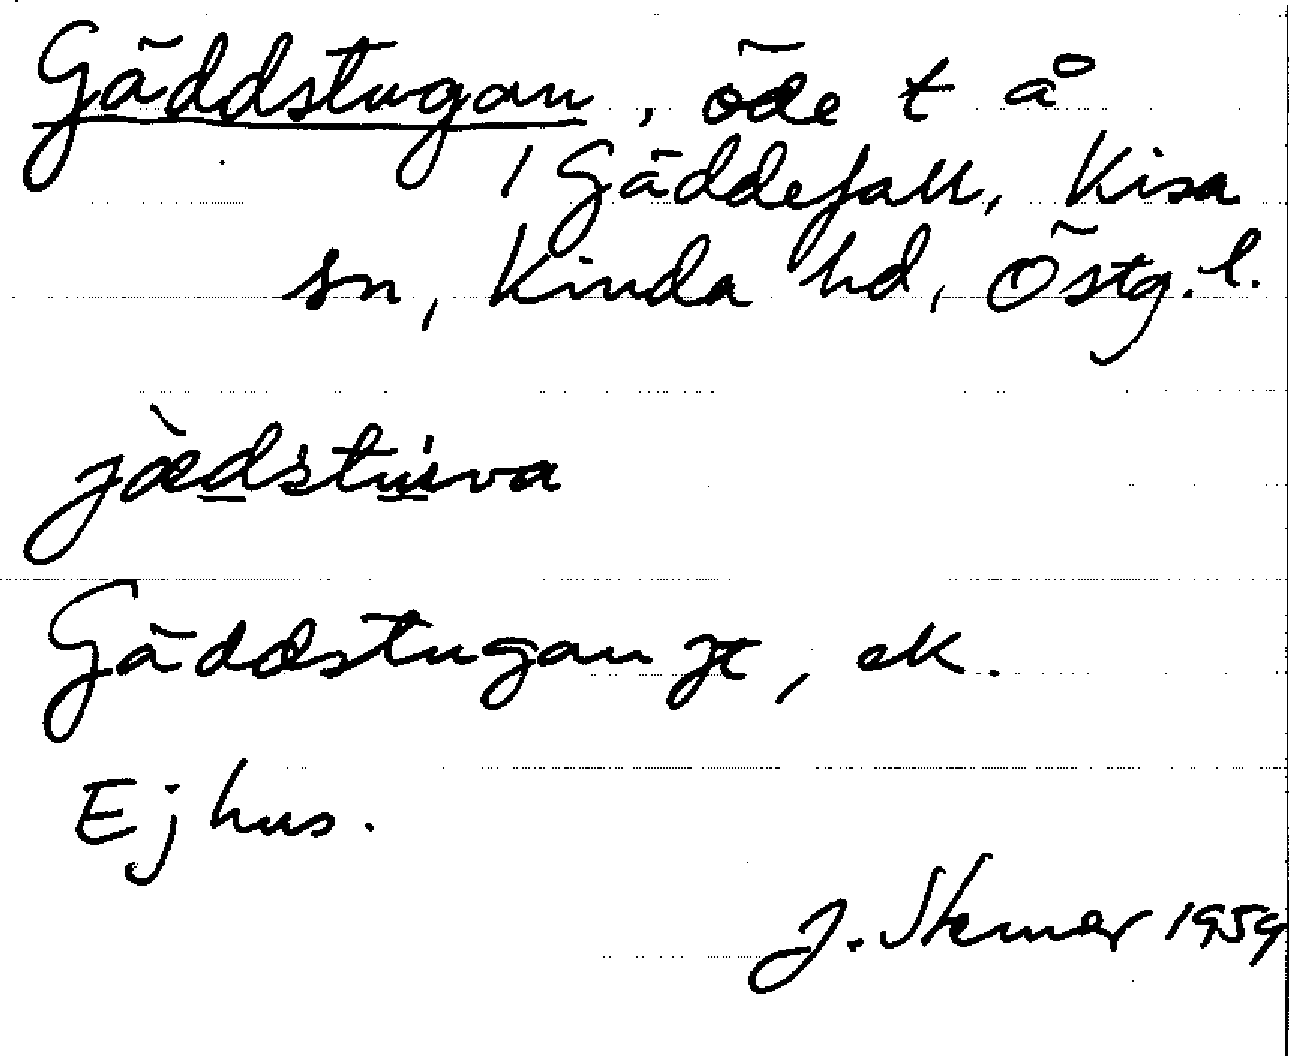 Gäddstugan, öde t å
i Gäddefall, Kisa
sn, Kinda hd, Östg.l.
jæ̀dstu̇va
Gäddstugan jt, ek.
Ej hus.
J. 1959